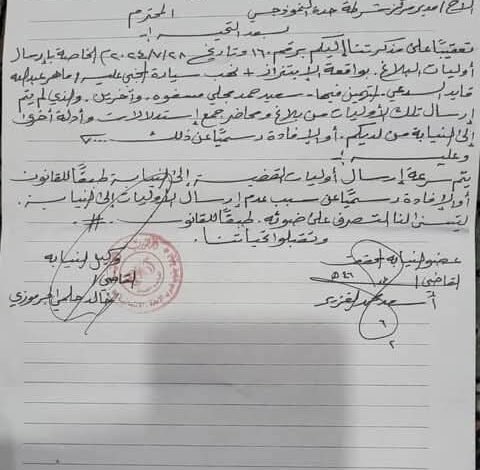 الأخ/ مدير مركز شرطة حدة النموذجي المحترم
بعد التحية
تعقيباً على مذكرتنا إليكم برقم ١٦٠ وتاريخ ٢٠٢٤/٧/٢٨ الخاصة بإرسال
أوليات البلاغ. بواقعة الابتزاز + نهب سيارة المجني عليه/ ماهر عبدالله
قايد السدعي. المتهمين فيها. سعيد حمد مجلي مسفوه. وآخرين. والذي لم يتم
إرسال تلك الأوليات من بلاغ ومحاضر جمع استدلالات وأدلة أخرى
إلى النيابة من لديكم. أو الإفادة رسمياً عن ذلك
وعليه
يتم سرعة إرسال أوليات القضية إلى النيابة طبقاً للقانون
أو الإفادة رسمياً عن سبب عدم إرسال الأوليات إلى النيابة.
ليتسنى لنا التصرف على ضوئه. طبقاً للقانون. #
وتقبلوا تحياتنا.
عضو النيابة وكيل النيابة
القاضي/ القاضي/
خالد حلمي